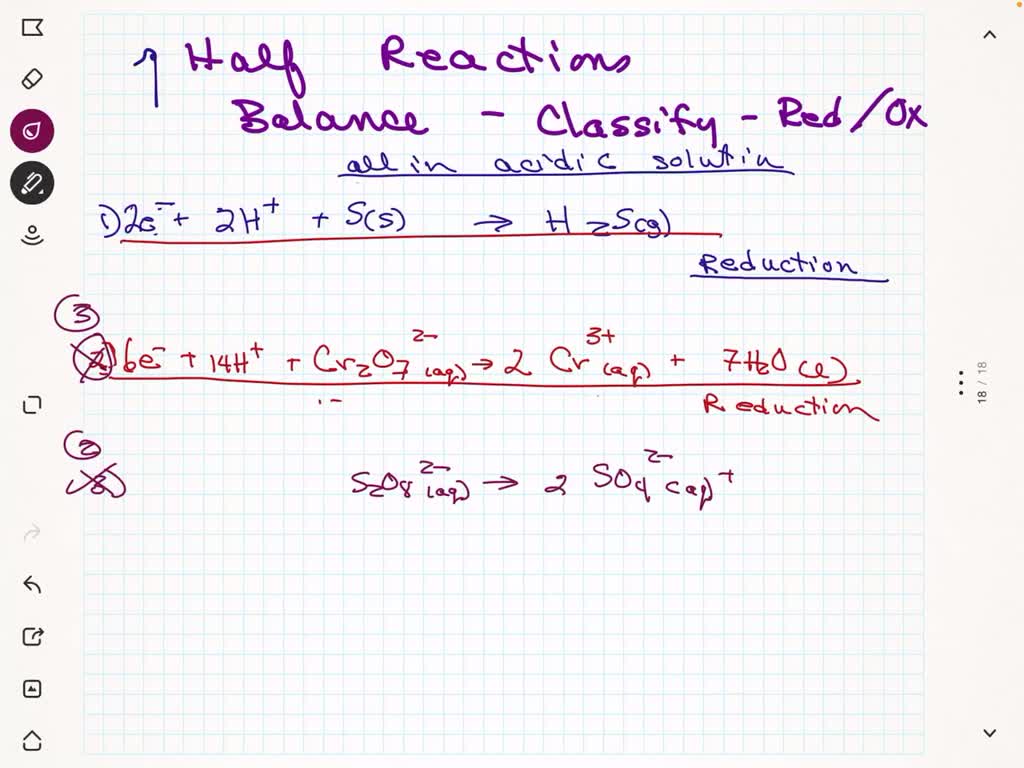 Half Reactions
Balance - Classify - Red/Ox
all in acidic solutin
1) 2e⁻ + 2H⁺ + S(s) → H₂S(g)
Reduction
③
2) 6e⁻ + 14H⁺ + Cr₂O₇²⁻(aq) → 2 Cr³⁺(aq) + 7H₂O(l)
Reduction
②
3) S₂O₈²⁻(aq) → 2 SO₄²⁻(aq) +
18 / 18